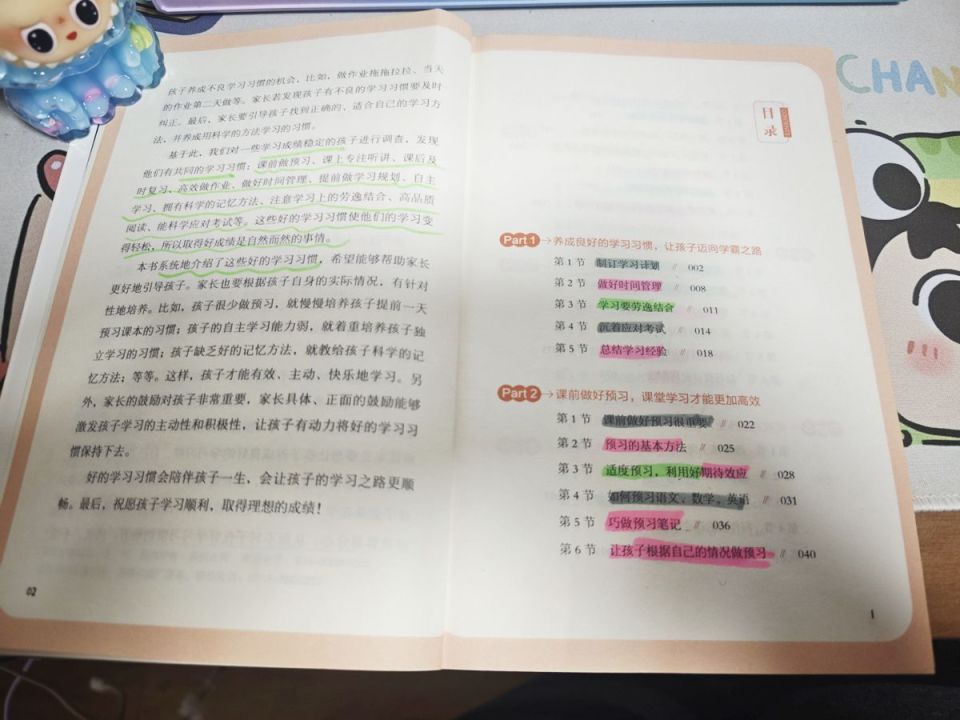 孩子养成不良学习习惯的机会，比如，做作业拖拖拉拉、当天
的作业第二天做等。家长若发现孩子有不良的学习习惯要及时
纠正。最后，家长要引导孩子找到正确的、适合自己的学习方
法，并养成用科学的方法学习的习惯。
基于此，我们对一些学习成绩稳定的孩子进行调查，发现
他们有共同的学习习惯：课前做预习、课上专注听讲、课后及
时复习、高效做作业、做好时间管理、提前做学习规划、自主
学习、拥有科学的记忆方法、注意学习上的劳逸结合、高品质
阅读、能科学应对考试等。这些好的学习习惯使他们的学习变
得轻松，所以取得好成绩是自然而然的事情。
本书系统地介绍了这些好的学习习惯，希望能够帮助家长
更好地引导孩子。家长也要根据孩子自身的实际情况，有针对
性地培养。比如，孩子很少做预习，就慢慢培养孩子提前一天
预习课本的习惯；孩子的自主学习能力弱，就着重培养孩子独
立学习的习惯；孩子缺乏好的记忆方法，就教给孩子科学的记
忆方法；等等。这样，孩子才能有效、主动、快乐地学习。另
外，家长的鼓励对孩子非常重要，家长具体、正面的鼓励能够
激发孩子学习的主动性和积极性，让孩子有动力将好的学习习
惯保持下去。
好的学习习惯会陪伴孩子一生，会让孩子的学习之路更顺
畅。最后，祝愿孩子学习顺利，取得理想的成绩！
02
目录
Part 1 养成良好的学习习惯，让孩子迈向学霸之路
第 1 节 制订学习计划 // 002
第 2 节 做好时间管理 // 008
第 3 节 学习要劳逸结合 // 011
第 4 节 沉着应对考试 // 014
第 5 节 总结学习经验 // 018
Part 2 课前做好预习，课堂学习才能更加高效
第 1 节 课前做好预习很重要 // 022
第 2 节 预习的基本方法 // 025
第 3 节 适度预习，利用好期待效应 // 028
第 4 节 如何预习语文、数学、英语 // 031
第 5 节 巧做预习笔记 // 036
第 6 节 让孩子根据自己的情况做预习 // 040
1
CHAN